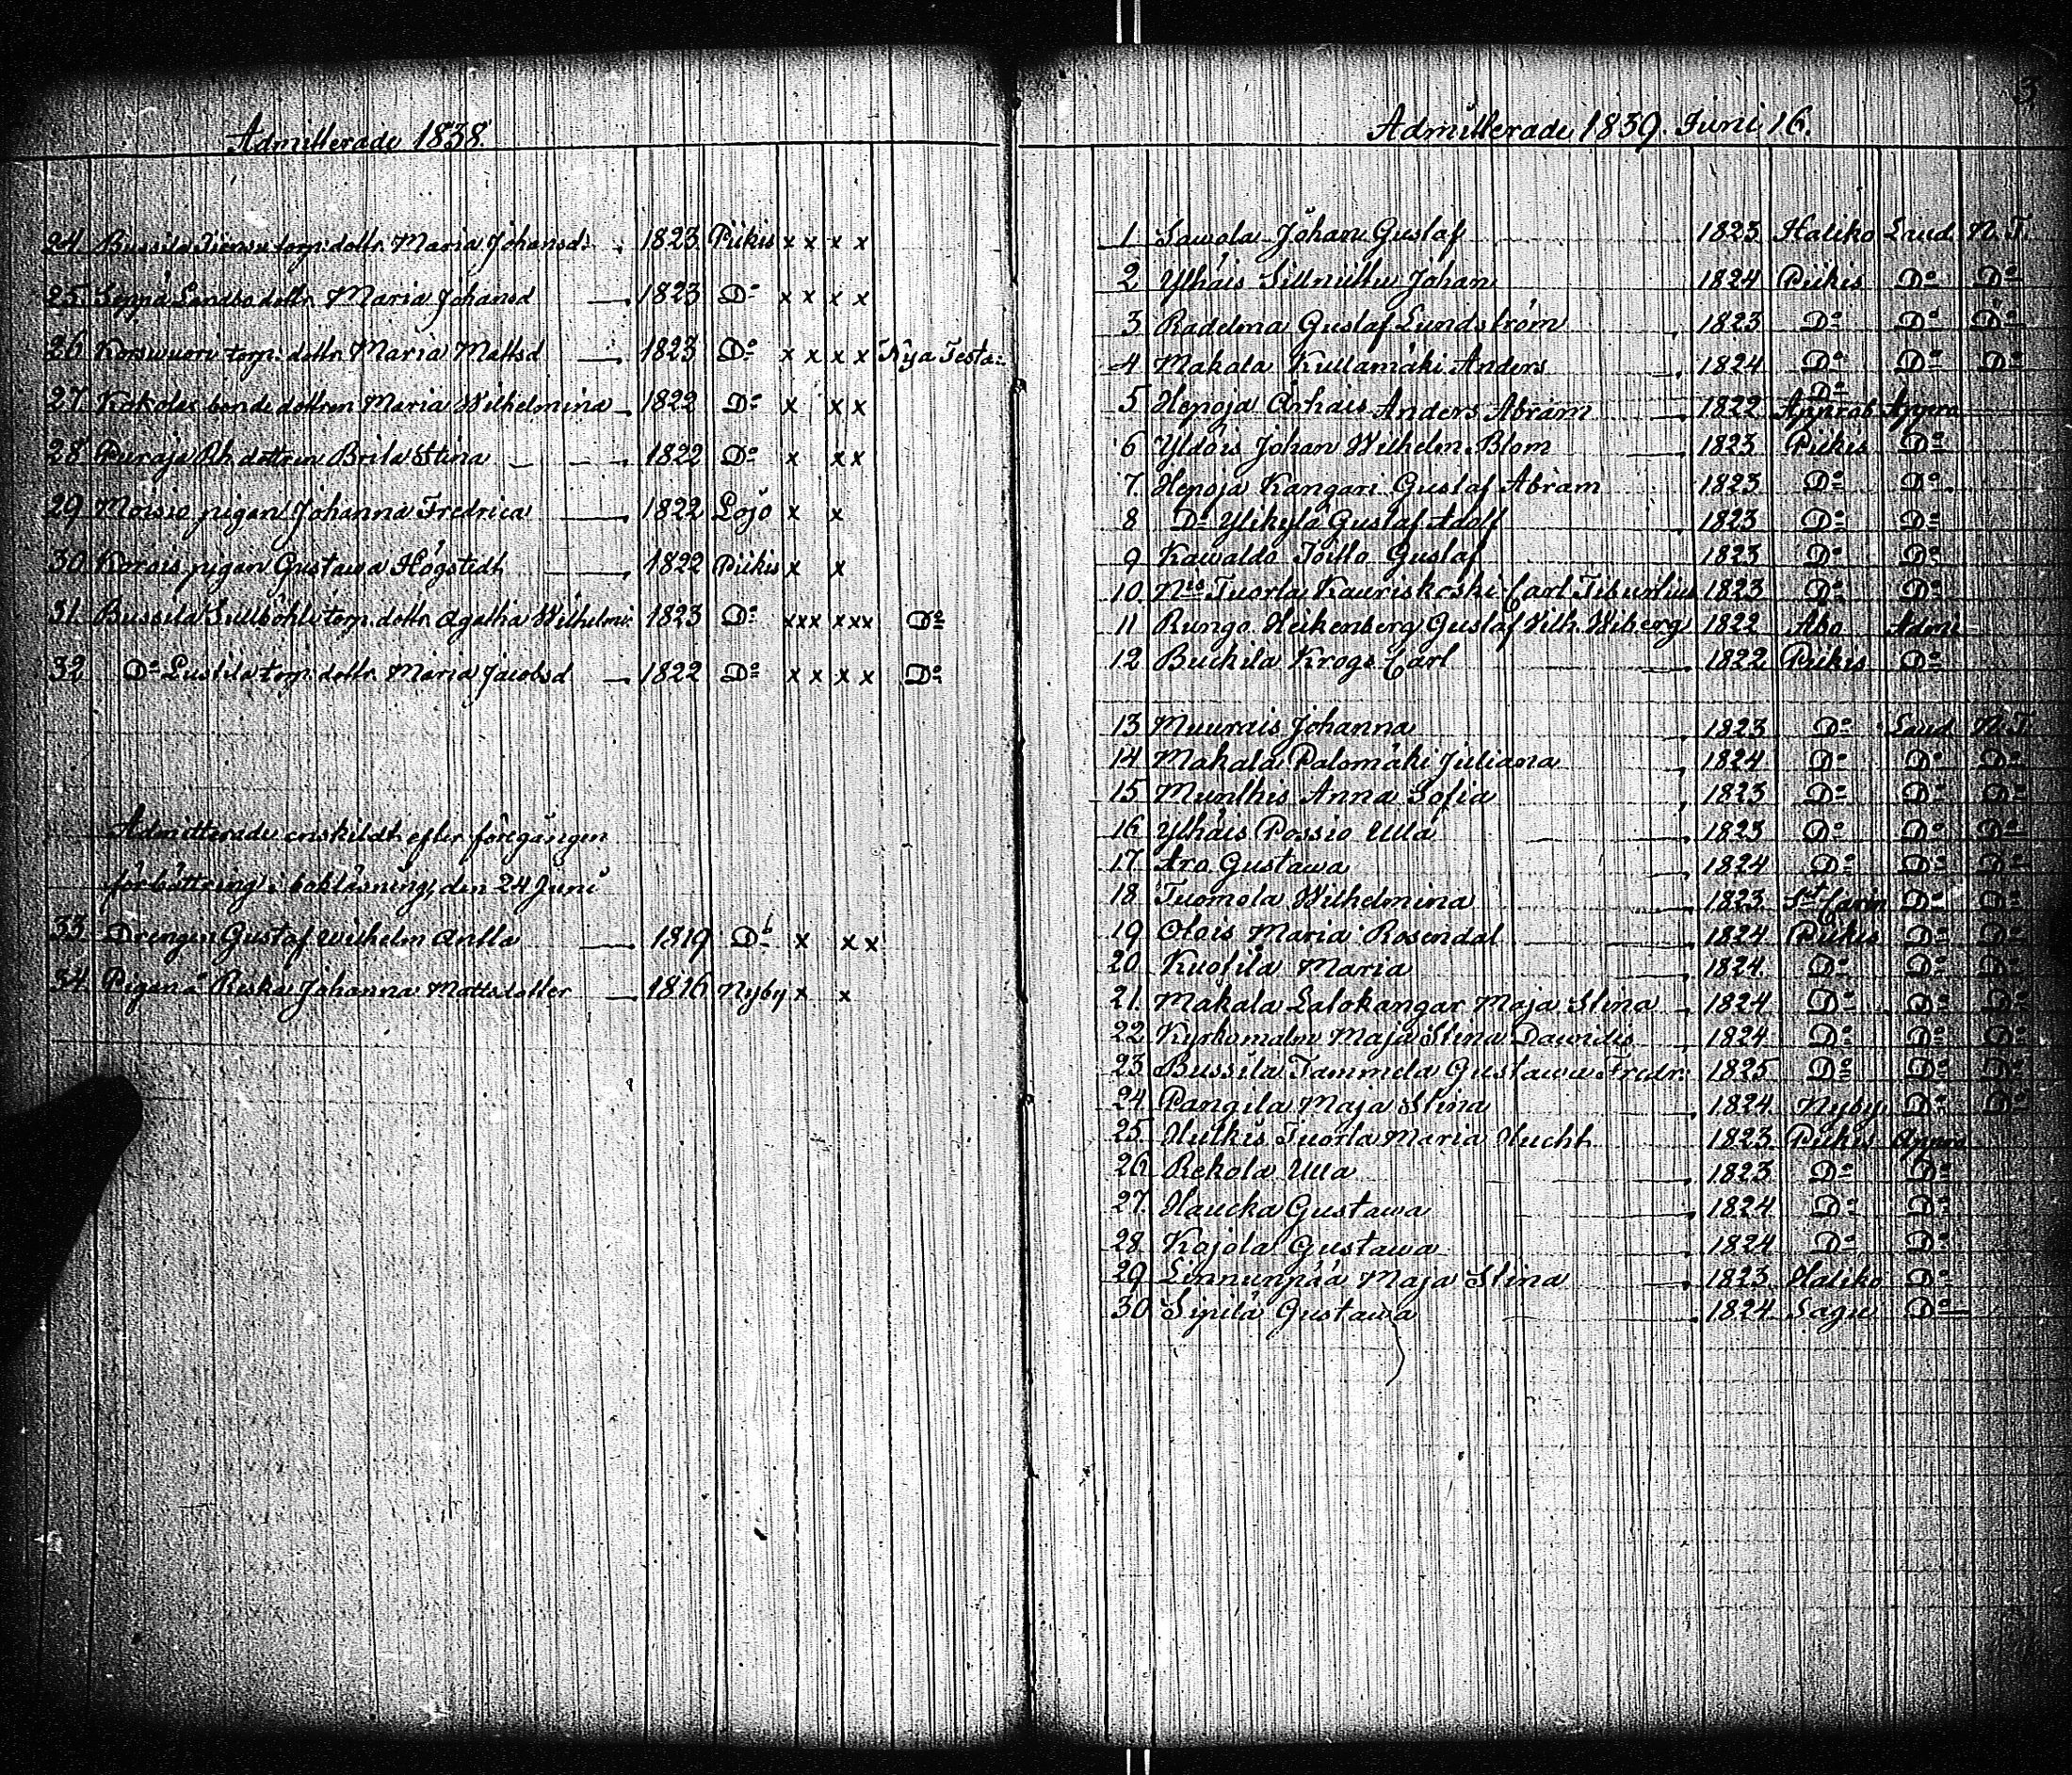 Admitterade 1838.
24 Bussila torp. dottr. Maria Johansd. 1823 Piikis x x x x
25 Seppä Landbo dottr Maria Johansd 1823 Do x x x x
26 Korswuori torp. dottr Maria Mattsd 1823 Do x x x x Nya Testa-
27 Kokolas bonde dottren Maria Wilhelmina 1822 Do x x x
28 Puraja dottren Brita Stina 1822 Do x x x
29 Moisio pigan Johanna Fredrica 1822 Lojo x x
30 Korois pigan Gustawa Högstedt 1822 Piikis x x
31. Bussila torp. dottr. Agatha Wilhelmi: 1823 Do xxx xxx Do
32 Do torp. dottr. Maria Jacobsd 1822 Do x x x x Do
Admitterade enskildt efter föregången
förbättring i bokläsning, den 24 Juni
33. Drengen Gustaf Wilhelm Antla 1819 Do x x x
34. Pigan å Riska Johanna Mattsdotter 1816 Nyby x x
3
Admitterade 1839. Juni 16.
1 Sawola Johan Gustaf 1823 Haliko Laud N. T.
2 Ylhäis Johan 1824 Piikis Do Do
3 Radelma Gustaf Lundström 1823 Do Do Do
4 Makala Kullamäki Anders 1824 Do Do Do
5 Hepoja Anders Abram 1822 Do Approb
6 Yldois Johan Wilhelm Blom 1823 Piikis Do
7. Hepoja Kangari Gustaf Abram 1823 Do Do
8 Do Ylikylä Gustaf Adolf 1823 Do Do
9 Kawaldo Gustaf 1823 Do Do
10. Tuorla Kauriskoski Carl Tiburtius 1823 Do Do
11 Rungo Heikenberg Gustaf Wilh. Wiberg 1822 Åbo Admi
12 Buchila Krogs Carl 1822 Piikis Do
13 Muurais Johanna 1823 Do Laud N. T.
14 Makala Palomäki Juliana 1824 Do Do Do
15 Munthis Anna Sofia 1823 Do Do Do
16 Ylhäis Possio Ulla 1823 Do Do Do
17 Aro Gustawa 1824 Do Do Do
18 Tuomola Wilhelmina 1823 St Carin Do Do
19 Olois Maria Rosendal 1824 Piikis Do Do
20 Kuotila Maria 1824 Do Do Do
21. Makala Lalokangar Maja Stina 1824 Do Do Do
22 Kyrkomalm Maja Stina Dawidis 1824 Do Do Do
23 Bussila Tammela Gustawa Fredr: 1825 Do Do Do
24 Pangila Maja Stina 1824 Nyby Do Do
25 Huthis Tuorla Maria Hucht 1823 Piikis
26 Rekola Ulla 1823 Do Do
27. Haucka Gustawa 1824 Do Do
28 Kajola Gustawa 1824 Do Do
29 Linnunpää Maja Stina 1823 Haliko Do
30 Sipilä Gustawa 1824 Sagu Do